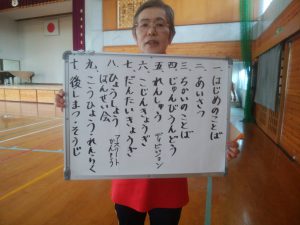 一、はじめのことば
二、あいさつ
三、ちかいのことば
四、じゅんびうんどう
五、れんしゅう ディビジョン
六、こじんきょうぎ
七、だんたいきょうぎ
八、ひょうしょう アスリート
ばんせい会
九、こうひょう・れんらく
十、後しまつ・そうじ